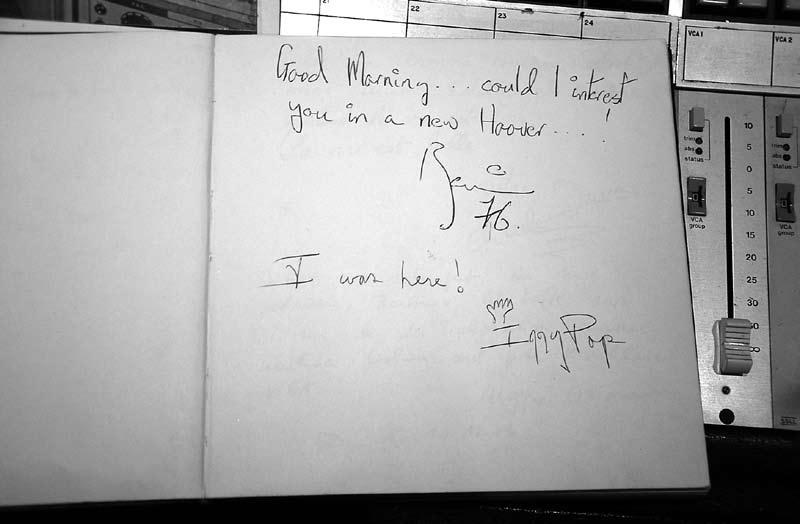 21 22 23 24
VCA 1 VCA 2
Good Morning... could I interest
you in a new Hoover....!
76.
I was here!
Iggy Pop
trim
abs
status
VCA
group
10
5
0
5
10
15
20
25
30
40
∞
trim
abs
status
VCA
group